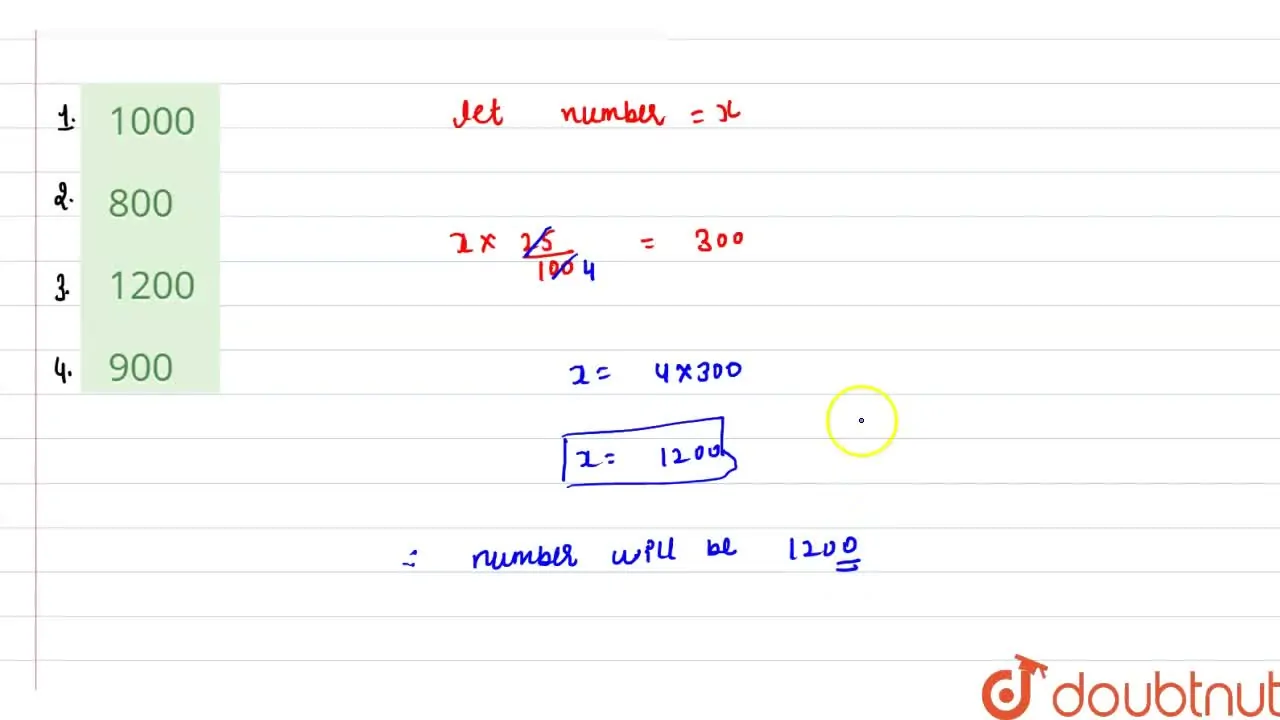 1. 1000
2. 800
3. 1200
4. 900
let number = x
x × 25/100 4 = 300
x = 4 × 300
x = 1200
∴ number will be 1200
doubtnut